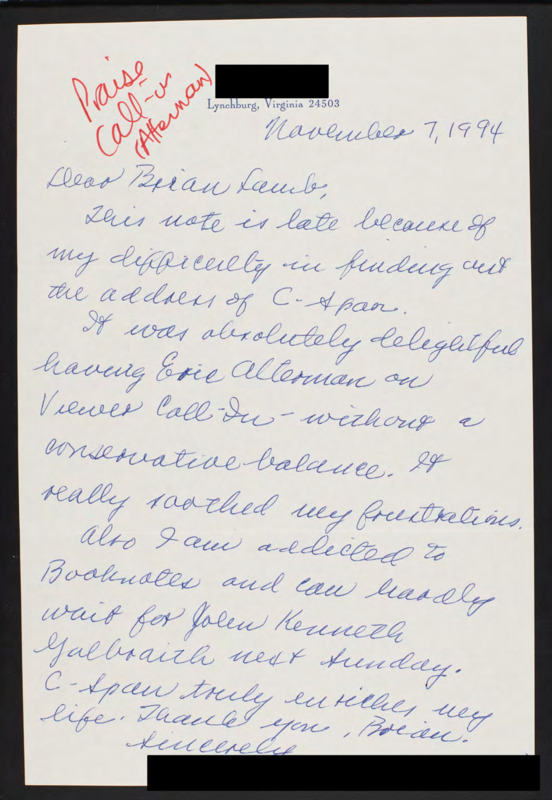 Praise
Call-in
(Alterman)
Lynchburg, Virginia 24503
November 7, 1994
Dear Brian Lamb,
This note is late because of
my difficulty in finding out
the address of C-Span.
It was absolutely delightful
having Eric Alterman on
Viewer Call-In - without a
conservative balance. It
really soothed my frustrations.
Also I am addicted to
Booknotes and can hardly
wait for John Kenneth
Galbraith next Sunday.
C-Span truly enriches my
life. Thank you, Brian.
Sincerely